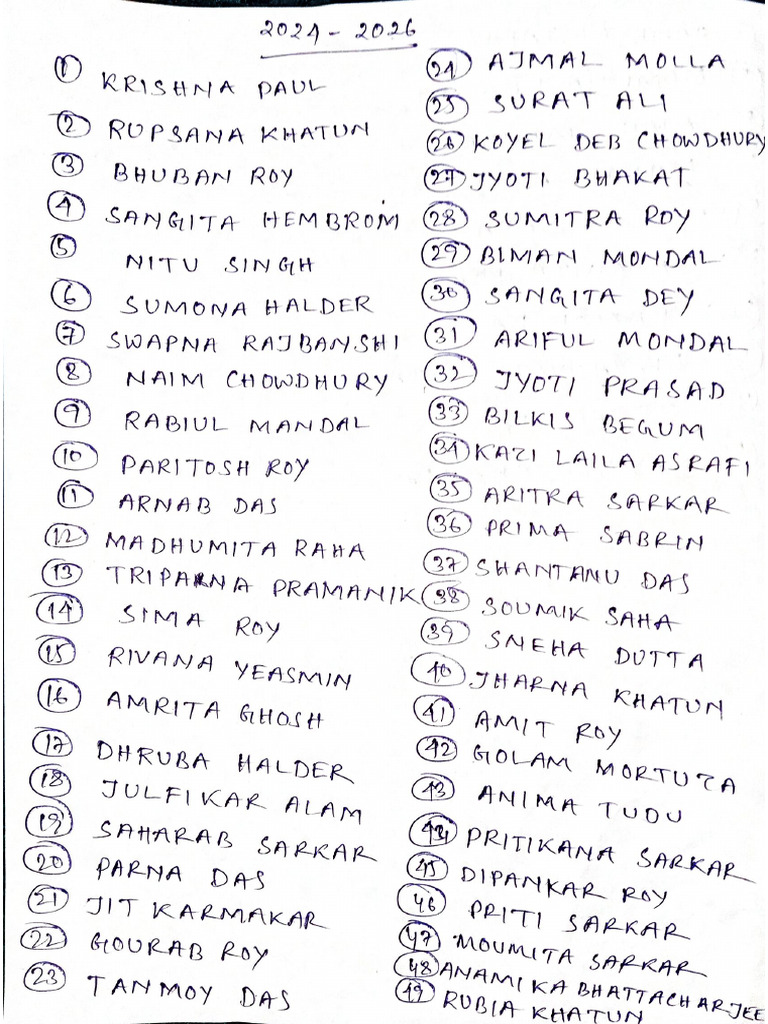 2024 - 2026
1 KRISHNA PAUL
2 RUPSANA KHATUN
3 BHUBAN ROY
4 SANGITA HEMBROM
5 NITU SINGH
6 SUMONA HALDER
7 SWAPNA RAJBANSHI
8 NAIM CHOWDHURY
9 RABIUL MANDAL
10 PARITOSH ROY
11 ARNAB DAS
12 MADHUMITA RAHA
13 TRIPARNA PRAMANIK
14 SIMA ROY
15 RIVANA YEASMIN
16 AMRITA GHOSH
17 DHRUBA HALDER
18 JULFIKAR ALAM
19 SAHARAB SARKAR
20 PARNA DAS
21 JIT KARMAKAR
22 GOURAB ROY
23 TANMOY DAS
24 AJMAL MOLLA
25 SURAT ALI
26 KOYEL DEB CHOWDHURY
27 JYOTI BHAKAT
28 SUMITRA ROY
29 BIMAN MONDAL
30 SANGITA DEY
31 ARIFUL MONDAL
32 JYOTI PRASAD
33 BILKIS BEGUM
34 KAZI LAILA ASRAFI
35 ARITRA SARKAR
36 PRIMA SABRIN
37 SHANTANU DAS
38 SOUMIK SAHA
39 SNEHA DUTTA
40 JHARNA KHATUN
41 AMIT ROY
42 GOLAM MORTUZA
43 ANIMA TUDU
44 PRITIKANA SARKAR
45 DIPANKAR ROY
46 PRITI SARKAR
47 MOUMITA SARKAR
48 ANAMIKA BHATTACHARJEE
49 RUBIA KHATUN